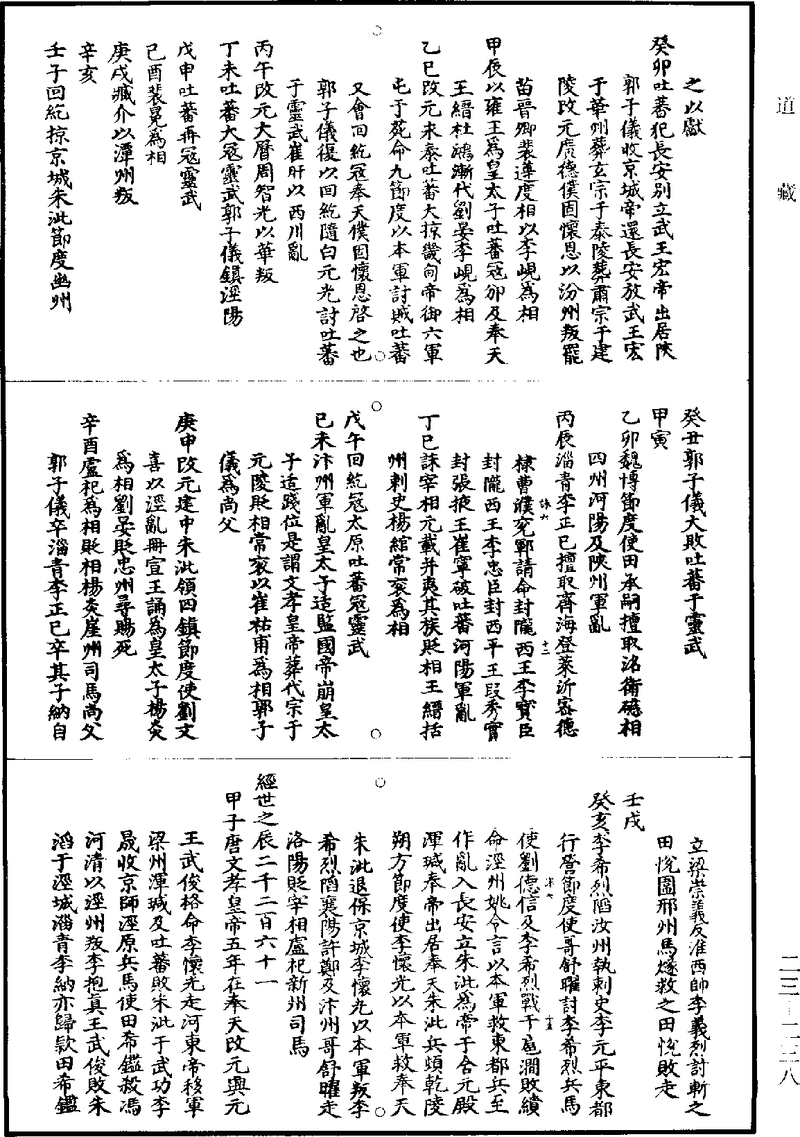 道藏
之以獻
癸卯吐蕃犯長安別立武王宏帝出居陝
郭子儀收京城帝還長安放武王宏
于華州葬玄宗于泰陵葬肅宗于建
陵改元廣德僕固懷恩以汾州叛罷
苗晉卿裴遵度相以李峴爲相
甲辰以雍王爲皇太子吐蕃冦邠及奉天
王縉杜鴻漸代劉晏李峴爲相
乙巳改元永泰吐蕃大掠畿甸帝御六軍
屯于苑命九節度以本軍討賊吐蕃
又會回紇冦奉天僕固懷恩啓之也
郭子儀復以回紇隨白元光討吐蕃
于靈武崔旰以西川亂
丙午改元大曆周智光以華叛
丁未吐蕃大冦靈武郭子儀鎮涇陽
戊申吐蕃再冦靈武
己酉裴冕爲相
庚戌臧介以潭州叛
辛亥
壬子回紇掠京城朱泚節度幽州
癸丑郭子儀大敗吐蕃于靈武
甲寅
乙卯魏博節度使田承嗣擅取洺衛磁相
四州河陽及陝州軍亂
丙辰淄青李正已擅取齊海登萊沂密德
棣曹濮兖鄆請命封隴西王李寶臣
封隴西王李忠臣封西平王段秀實
封張掖王崔寧破吐蕃河陽軍亂
丁巳誅宰相元載并夷其族貶相王縉括
州刺史楊綰常衮爲相
戊午回紇冦太原吐蕃冦靈武
己未汴州軍亂皇太子适監國帝崩皇太
子适踐位是謂文孝皇帝葬代宗于
元陵貶相常衮以崔祐甫爲相郭子
儀爲尚父
庚申改元建中朱泚領四鎮節度使劉文
喜以涇亂冊宣王誦爲皇太子楊炎
爲相劉晏貶忠州尋賜死
辛酉盧杞爲相貶相楊炎崖州司馬尚父
郭子儀卒淄青李正已卒其子納自
立梁崇義反淮西帥李義烈討斬之
田悅圍邢州馬燧救之田悅敗走
壬戌
癸亥李希烈陷汝州執刺史李元平東都
行營節度使哥舒曜討李希烈兵馬
使劉德信及李希烈戰于扈澗敗績
命涇州姚令言以本軍救東都兵至
作亂入長安立朱泚爲帝于含元殿
渾瑊奉帝出居奉天朱泚兵頓乾陵
朔方節度使李懷光以本軍救奉天
朱泚退保京城李懷光以本軍叛李
希烈陷襄陽許鄭及汴州哥舒曜走
洛陽貶宰相盧杞新州司馬
經世之辰二千二百六十一
甲子唐文孝皇帝五年在奉天改元興元
王武俊格命李懷光走河東帝移軍
梁州渾瑊及吐蕃敗朱泚于武功李
晟收京師涇原兵馬使田希鑑殺馮
河清以涇州叛李抱真王武俊敗朱
滔于涇城淄青李納亦歸款田希鑑
二三—二三八